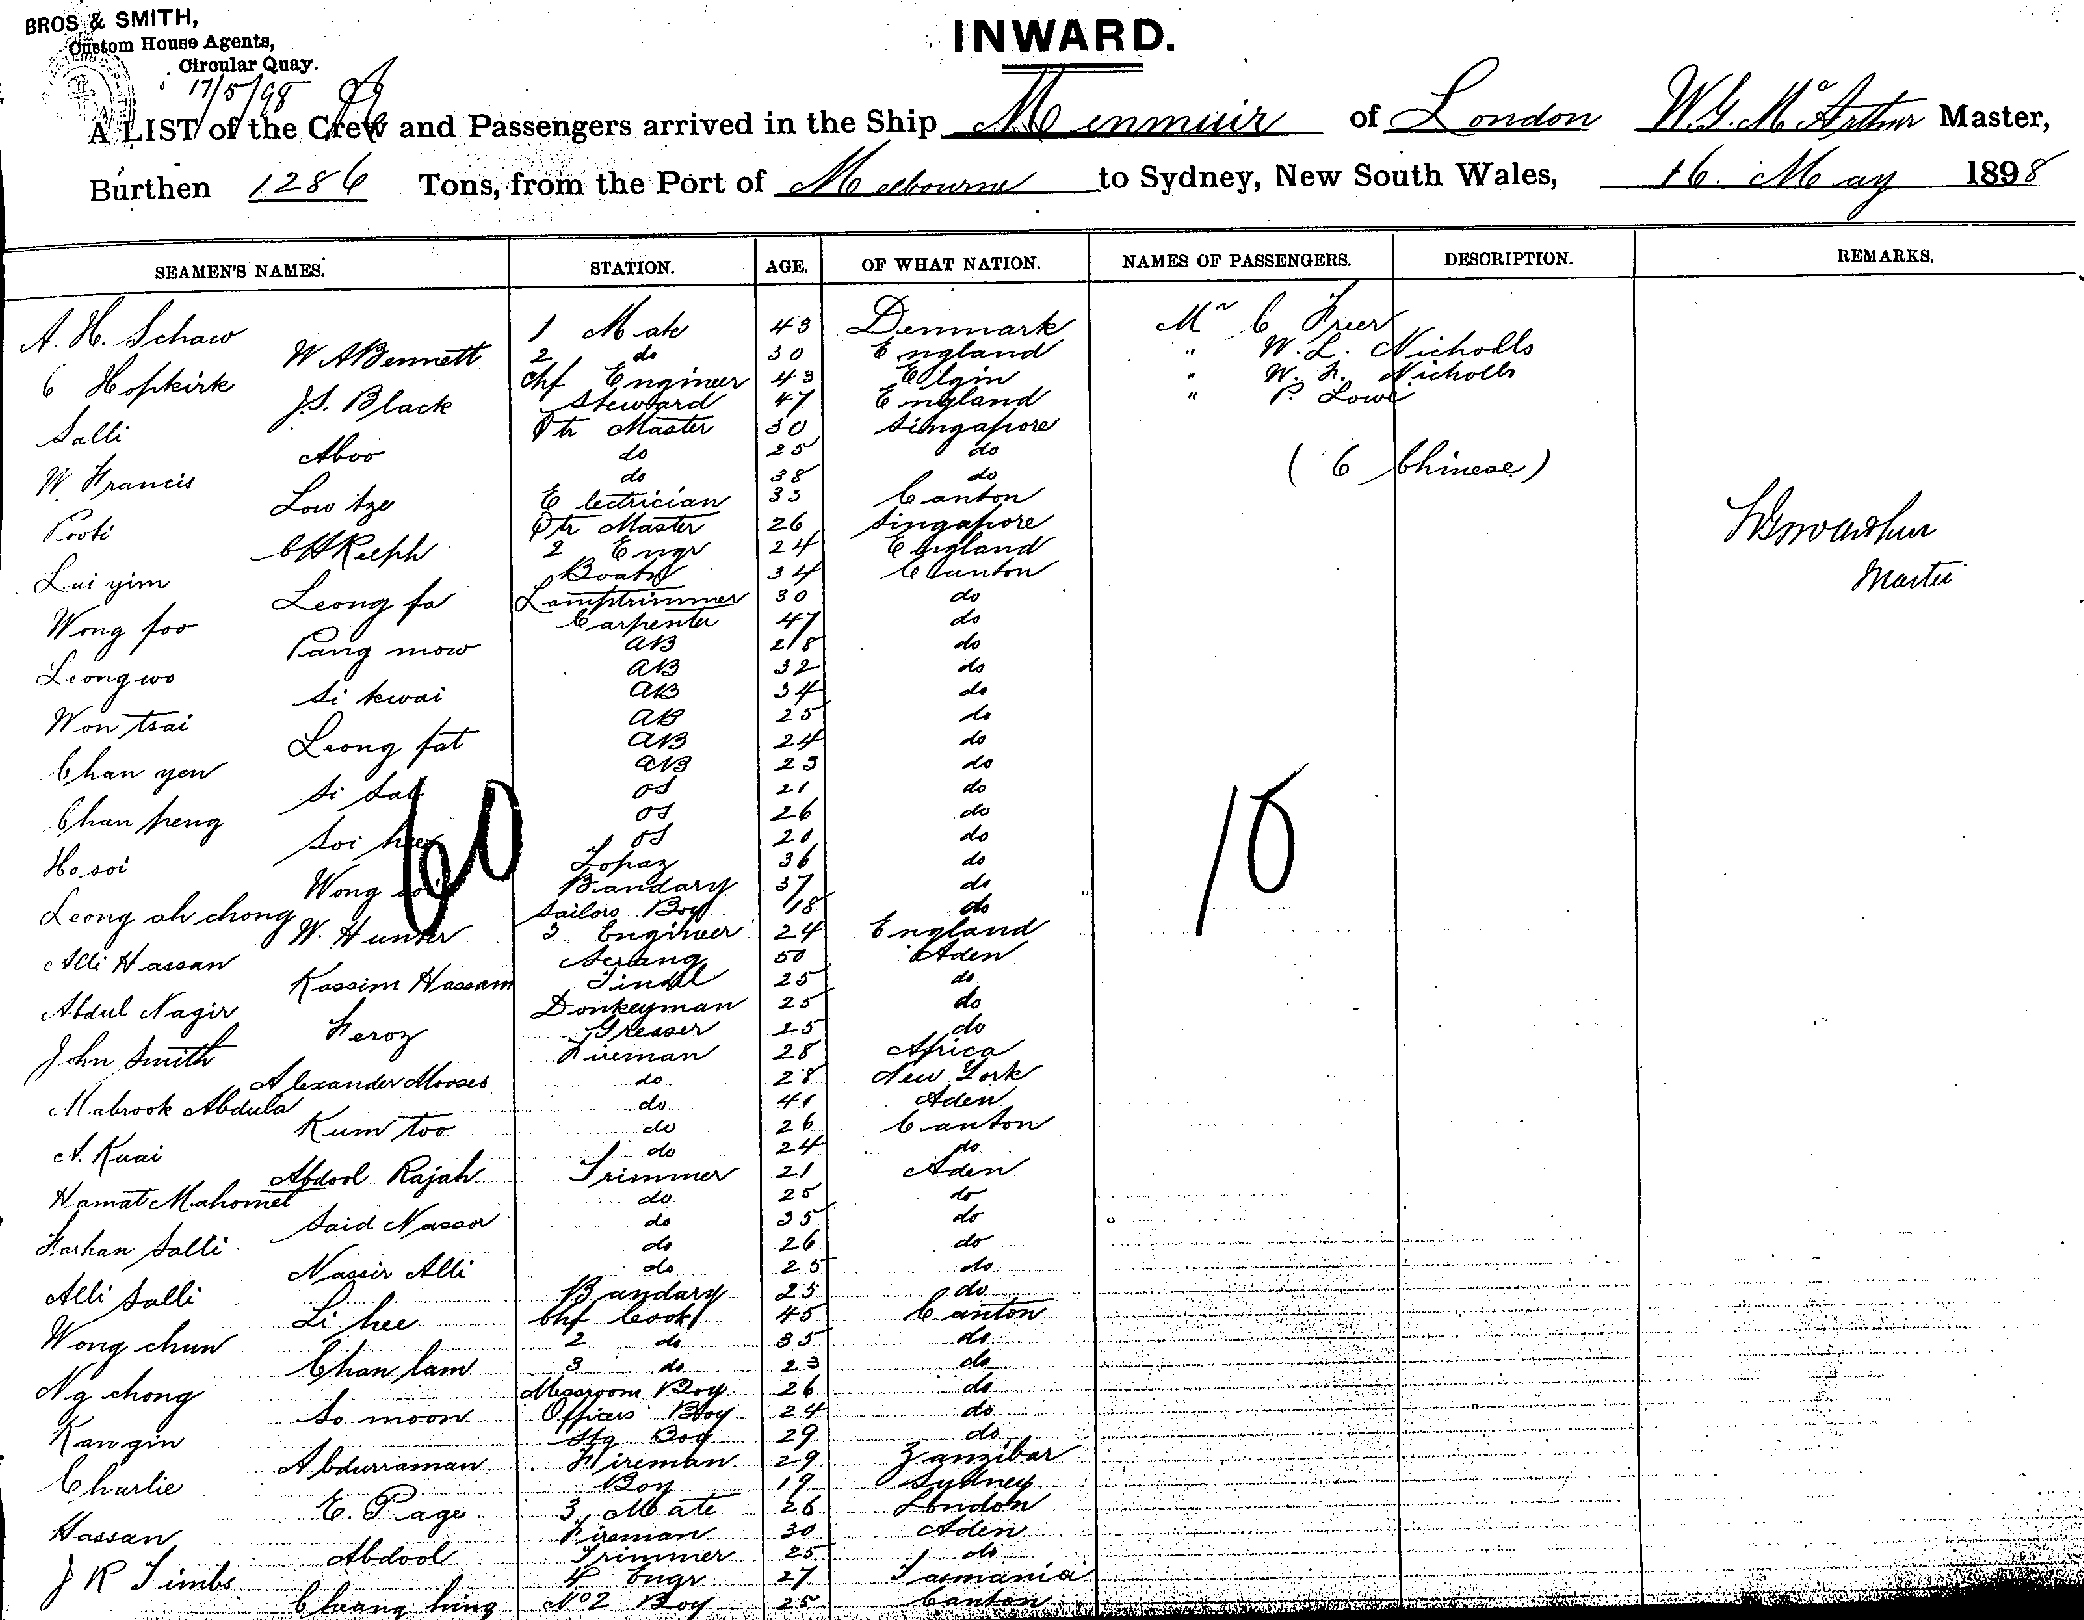 BROS & SMITH,
Custom House Agents,
Circular Quay.
17/5/98
INWARD.
A LIST of the Crew and Passengers arrived in the Ship Menmuir of London W. G. McArthur Master,
Burthen 1286 Tons, from the Port of Melbourne to Sydney, New South Wales, 16. May 1898
SEAMEN'S NAMES. STATION. AGE. OF WHAT NATION. NAMES OF PASSENGERS. DESCRIPTION. REMARKS.
A. H. Schaw 1 Mate 43 Denmark Mr C Freer
W A Bennett 2 do 30 England " W. L. Nicholls
C Hopkirk Chf Engineer 43 Elgin " W. Nicholls
J. S. Black Steward 47 England " P. Lowe
Salli Qtr Master 30 Singapore
Aboo do 25 do
W. Francis do 38 do (6 Chinese)
Low tze Electrician 33 Canton
Pooti Qtr Master 26 Singapore
C H Relph 2 Engr 24 England
Lui yim Boatsn 34 Canton Master
Leong fa Lamptrimmer 30 do
Wong foo Carpenter 47 do
Pang mow AB 28 do
Leong wo AB 32 do
Si kwai AB 34 do
Won tsai AB 25 do
Leong fat AB 24 do
Chan yen AB 23 do
Si Sat OS 21 do
Chan peng OS 26 do
Soi hee OS 20 do
Ho soi Topaz 36 do
Wong soi Bandary 37 do
Leong ah chong Sailors Boy 18 do
60
10
W. Hunter 3 Engineer 24 England
Alli Hassan Serang 50 Aden
Kassim Hassam Tindal 25 do
Abdul Nagir Donkeyman 25 do
Feroz Greaser 25 do
John Smith Fireman 28 Africa
Alexander Mooses do 28 New York
Mabrook Abdula do 41 Aden
Kum too do 26 Canton
A. Kuai do 24 do
Abdool Rajah Trimmer 21 Aden
Hamat Mahomet do 25 do
Said Nassor do 35 do
Farhan Salli do 26 do
Nassir Alli do 25 do
Alli Salli Bandary 25 do
Li hee Chf Cook 45 Canton
Wong chun 2 do 35 do
Chan lam 3 do 23 do
Ng chong Messroom Boy 26 do
So moon Officers Boy 24 do
Kan gin Stg Boy 29 do
Abdurraman Fireman 29 Zanzibar
Charlie Boy 19 Sydney
E. Page 3 Mate 26 London
Hassan Fireman 30 Aden
Abdool Trimmer 25 do
J R Timbs 4 Engr 27 Tasmania
Chuang hing No 2 Boy 25 Canton